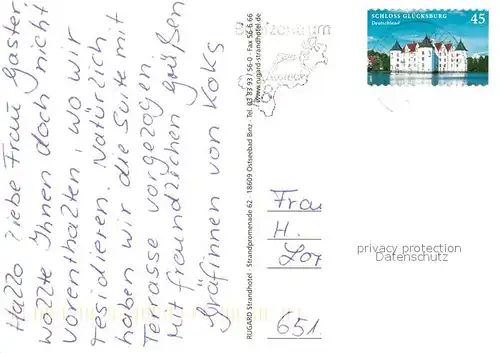 Hallo liebe Frau Gaster
wollte Ihnen doch nicht
vorenthalten, wo wir
residieren. Natürlich
haben wir die Suite mit
Terrasse vorgezogen
Mit freundlichen Grüßen
Gräfinnen von Koks
RUGARD Strandhotel · Strandpromenade 62 · 18609 Ostseebad Binz · Tel. 03 83 93 / 56-0 · Fax 56-6 66
www.rugard-strandhotel.de
SCHLOSS GLÜCKSBURG 45
Deutschland
Frau
H.
651
privacy protection
Datenschutz